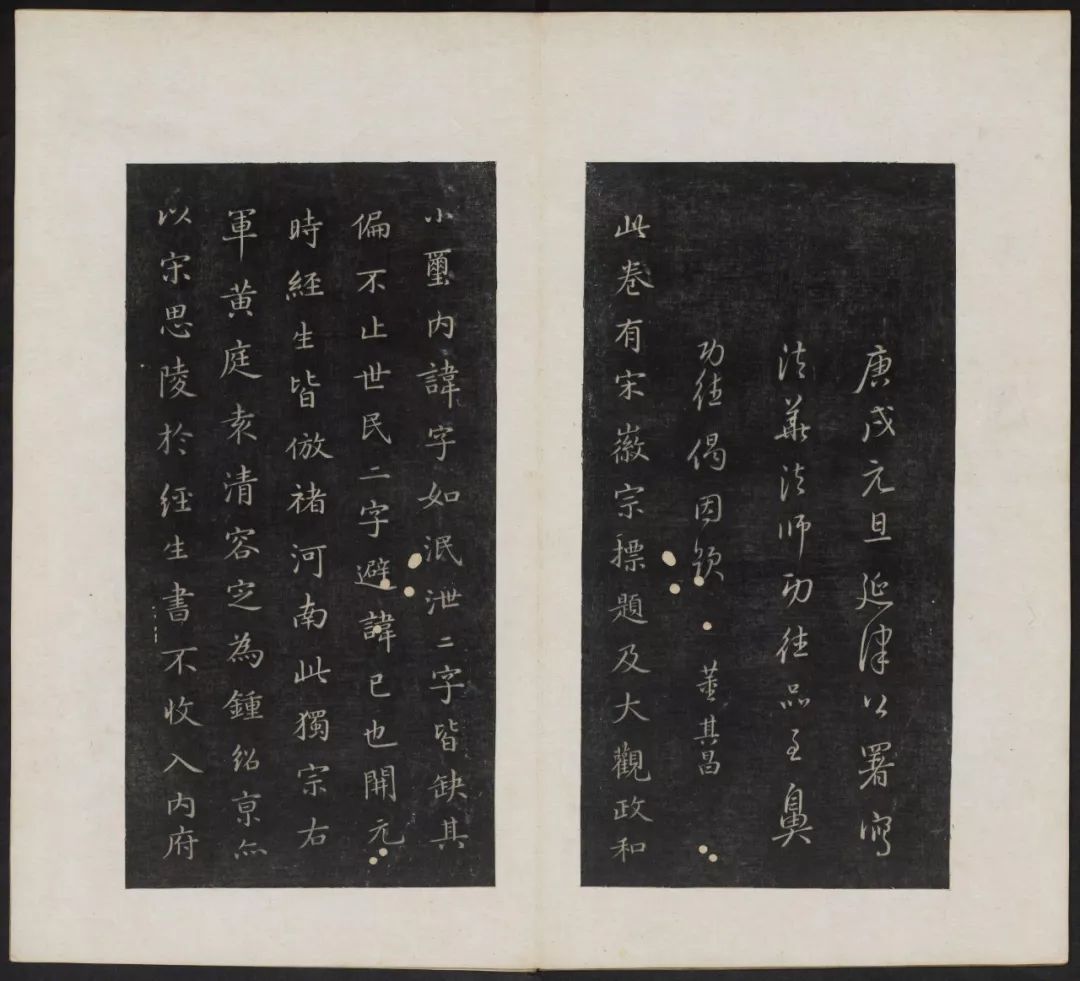 庚戌元旦延津公署寫
法華法師功德品至鼻
功德偈因題 董其昌
此卷有宋徽宗標題及大觀政和
小璽內諱字如泯泄二字皆缺其
偏不止世民二字避諱已也開元
時經生皆倣褚河南此獨宗右
軍黃庭袁清容定為鍾紹京亦
以宋思陵於經生書不收入內府